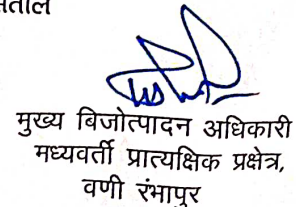 मुख्य बिजोत्पादन अधिकारी
मध्यवर्ती प्रात्यक्षिक प्रक्षेत्र,
वणी रंभापुर